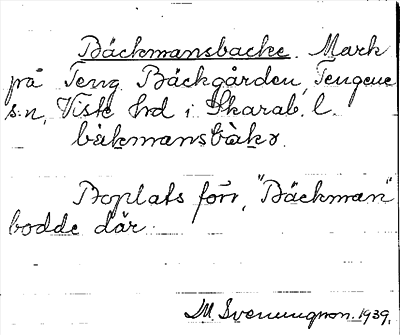 Bäckmansbacke. Mark
på Teng Bäckgården, Tengene
s:n, Viste hd i Skarab. l.
bäkmansbàkə.
Boplats förr, "Bäckman"
bodde där.
M. Svenungsson. 1939.